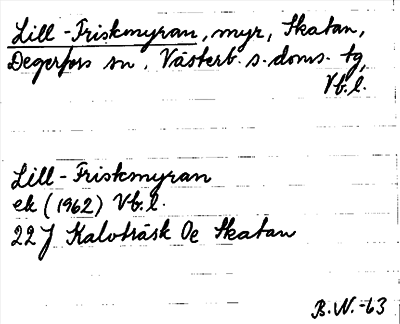 Lill-Friskmyran, myr, Skatan,
Degerfors sn. Västerb. s. doms. tg,
Vb. l.
Lill-Friskmyran
ek (1962) Vb. l.
22 J Kalvträsk 0e Skatan
B.N.-63